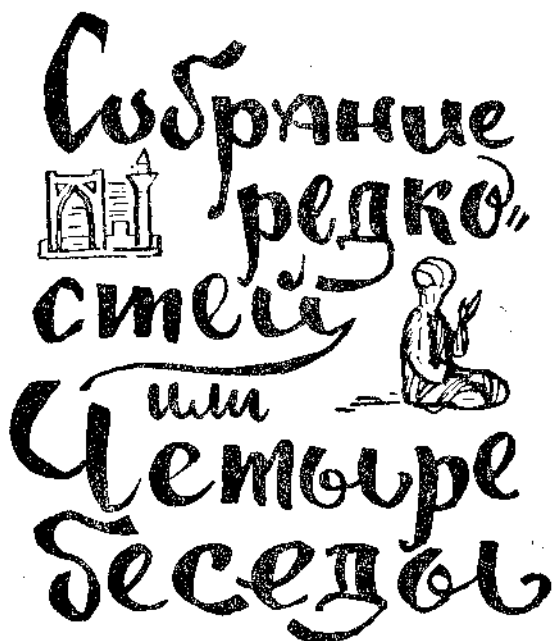 Собрание
редко-
стей
или
Четыре
беседы